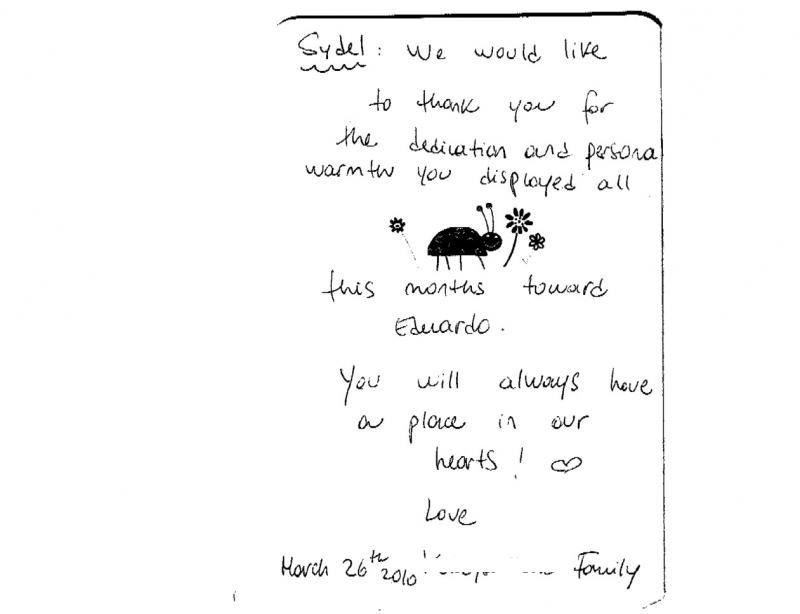 Sydel: We would like
to thank you for
the dedication and persona
warmth you displayed all
this months toward
Eduardo.
You will always have
a place in our
hearts! ♡
Love
March 26th 2010 Family